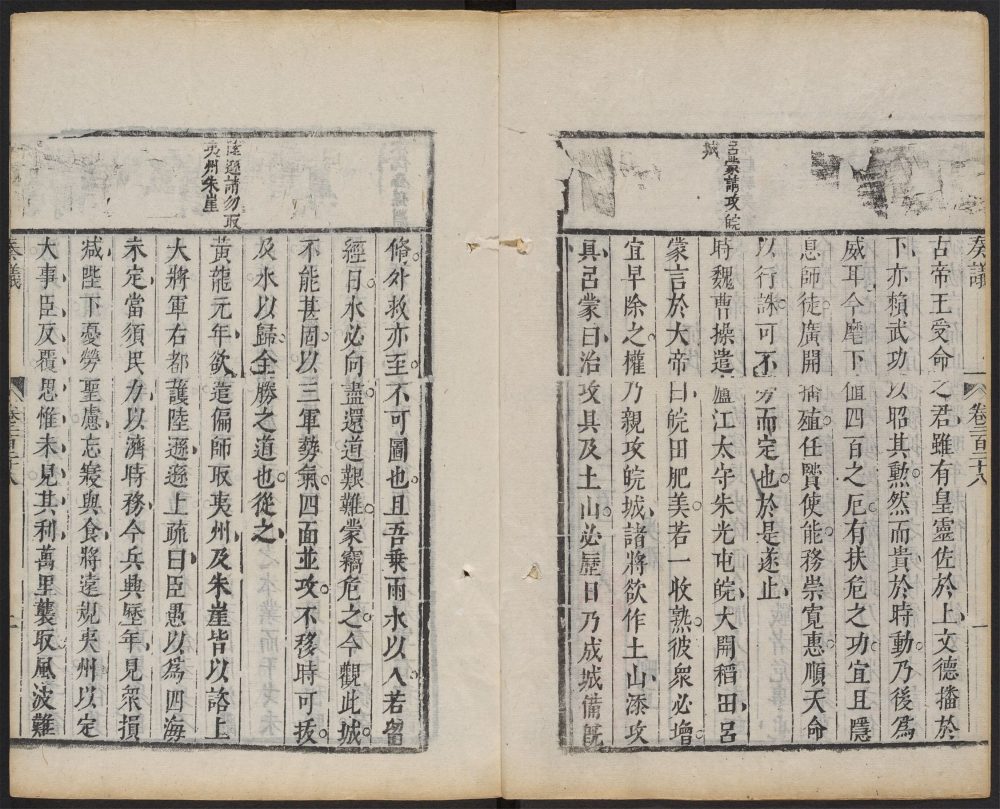 奏議
卷三百三十八
一
呂蒙請攻皖
城
古帝王受命之君雖有皇靈佐於上文德播於
下亦賴武功以昭其勲然而貴於時動乃後爲
威耳今麾下値四百之厄有扶危之功宜且隱
息師徒廣開播殖任賢使能務崇寬惠順天命
以行誅可不勞而定也於是遂止
時魏曹操遣廬江太守朱光屯皖大開稻田呂
蒙言於大帝曰皖田肥美若一收熟彼衆必增
宜早除之權乃親攻皖城諸將欲作土山添攻
具呂蒙曰治攻具及土山必歷日乃成城備旣
脩外救亦至不可圖也且吾乗雨水以入若留
經日水必向盡還道艱難蒙竊危之今觀此城
不能甚固以三軍勢氣四面並攻不移時可拔
及水以歸全勝之道也從之
陸遜請勿取
夷州朱崖
黃龍元年欲遣偏師取夷州及朱崖皆以諮上
大將軍右都護陸遜遜上疏曰臣愚以爲四海
未定當須民力以濟時務今兵興歷年見衆損
減陛下憂勞聖慮忘寢與食將遠規夷州以定
大事臣反覆思惟未見其利萬里襲取風波難
奏議